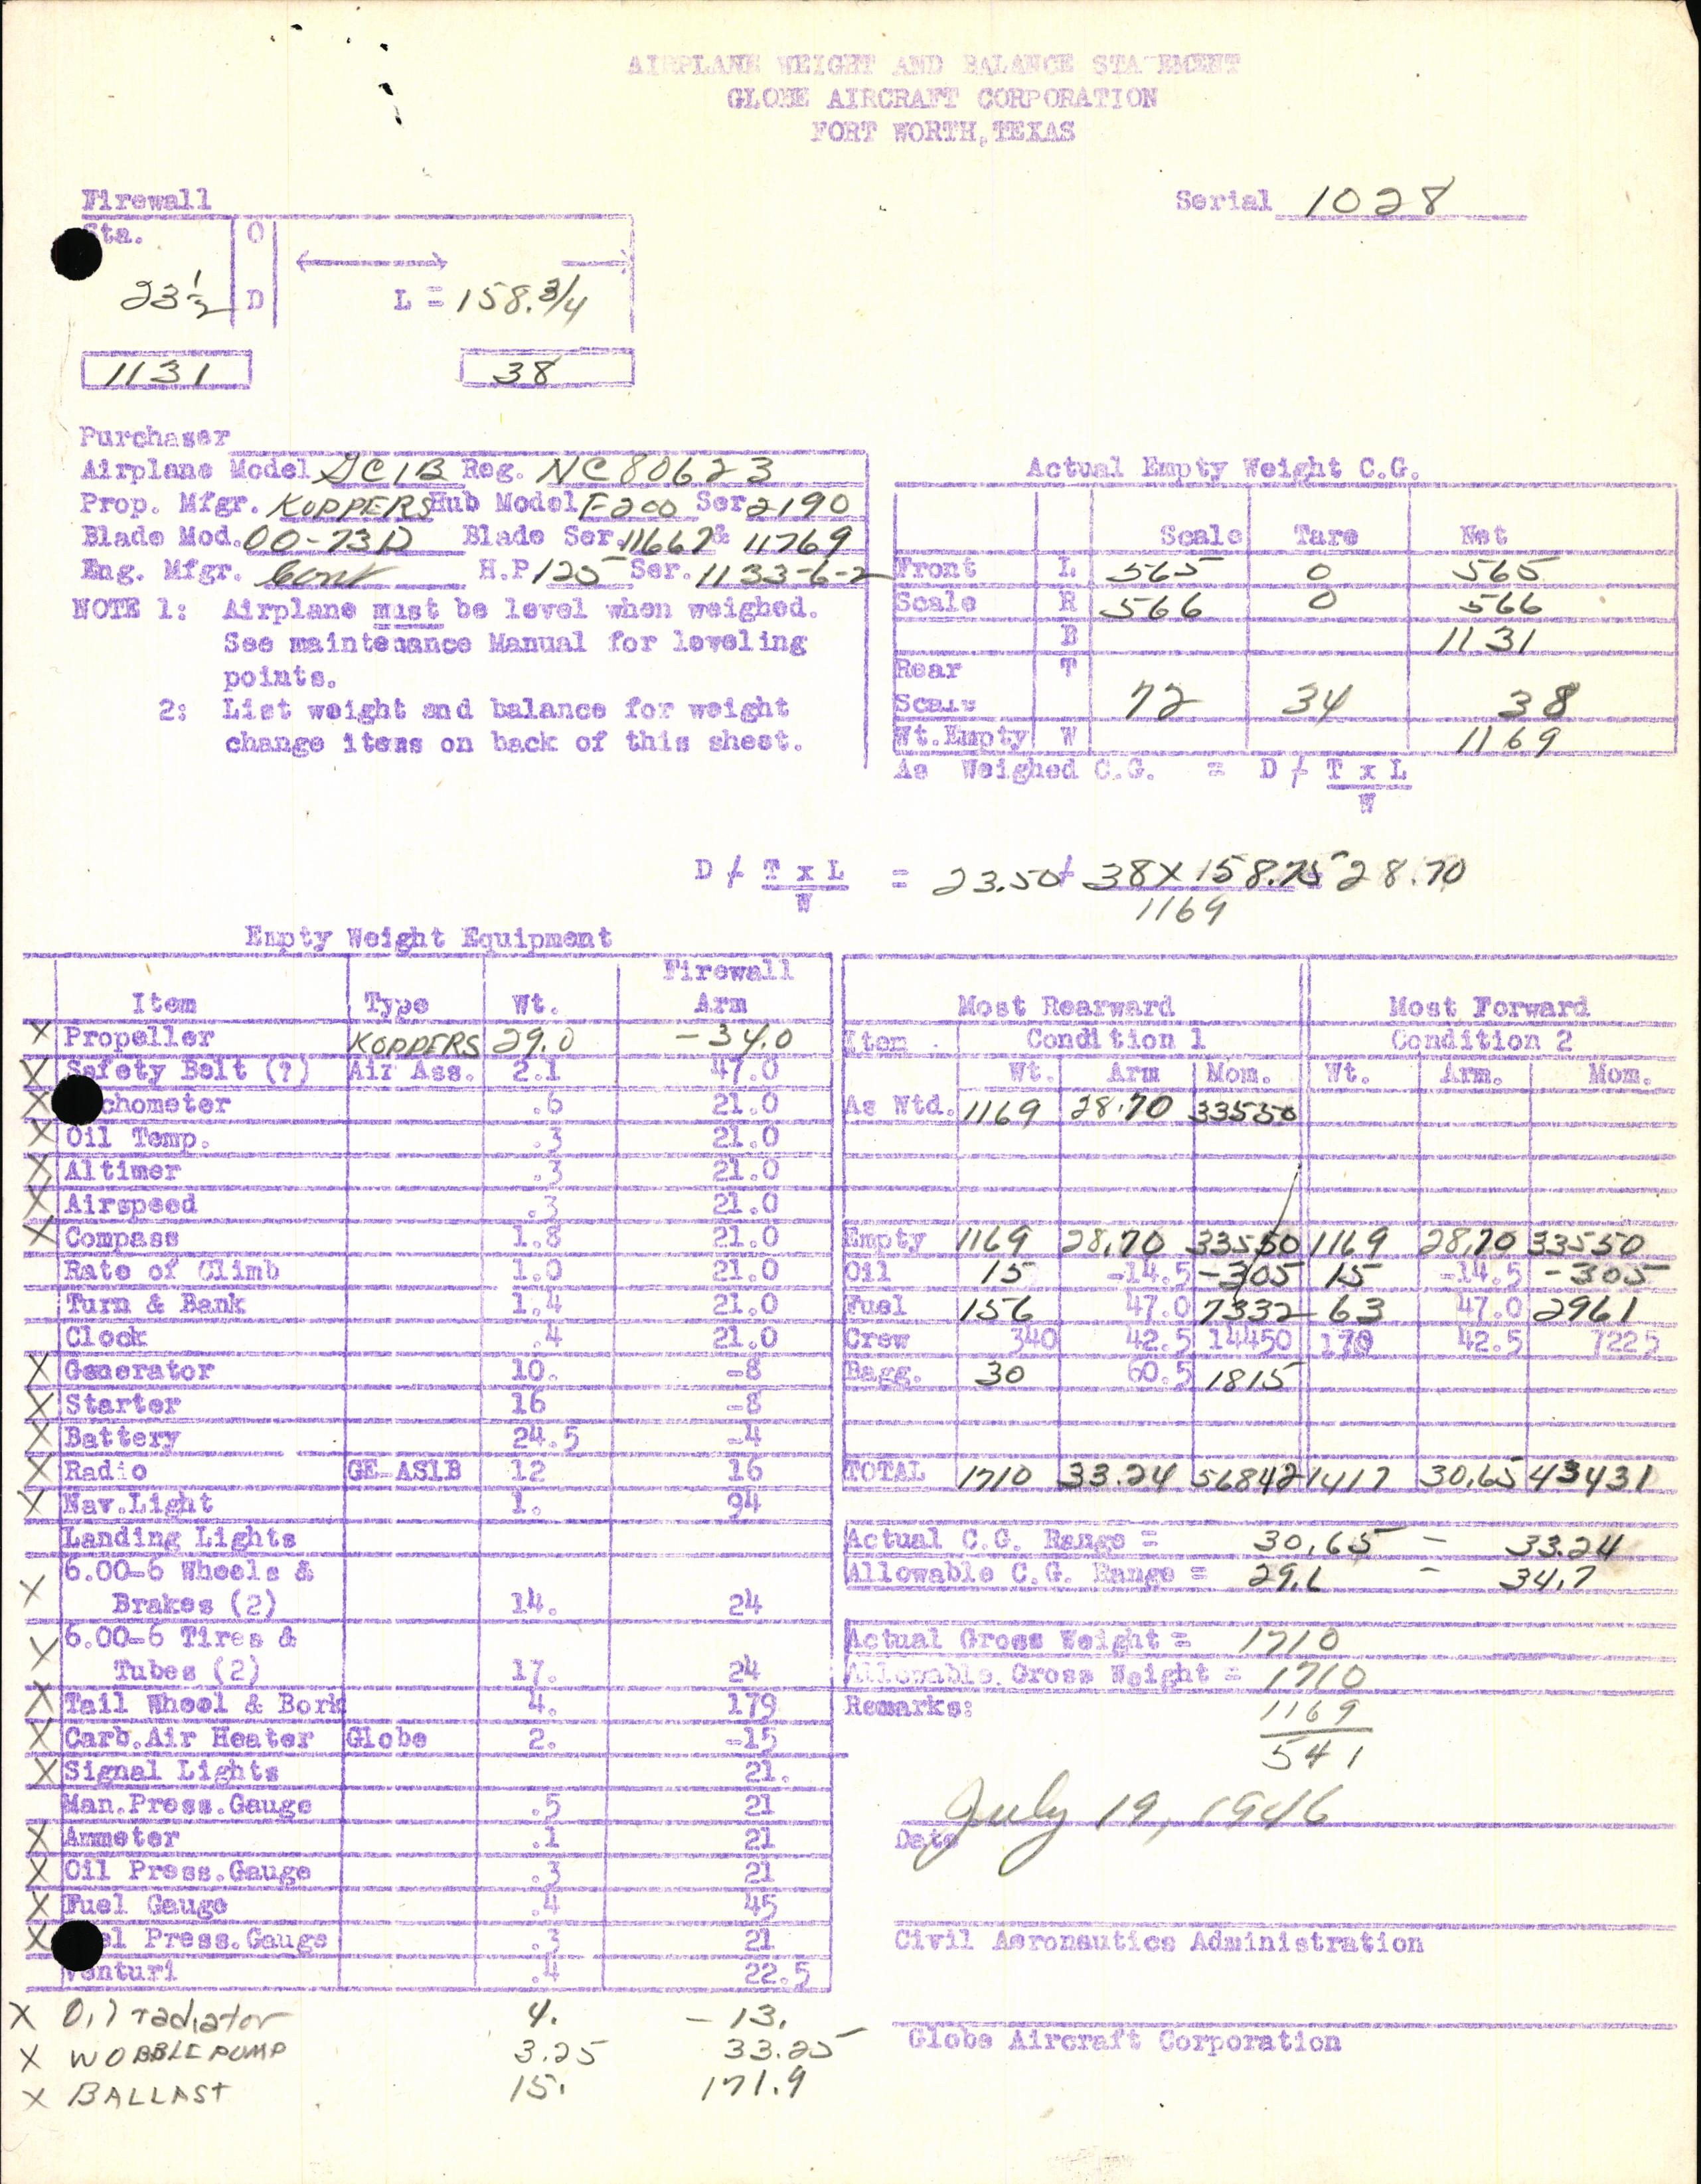 AIRPLANE WEIGHT AND BALANCE STATEMENT
GLOBE AIRCRAFT CORPORATION
FORT WORTH, TEXAS
Serial 1028
Firewall
Sta. O
23 1/2 D L = 158.3/4
1131 38
Purchaser
Airplane Model GC1B Reg. NC80623
Prop. Mfgr. KOPPERS Hub Model F200 Ser 2190
Blade Mod. 00-73D Blade Ser. 11667 & 11769
Eng. Mfgr. Cont H.P 125 Ser. 1133-6-2
NOTE 1: Airplane must be level when weighed.
See maintenance Manual for leveling
points.
2: List weight and balance for weight
change items on back of this sheet.
Actual Empty Weight C.G.
Scale Tare Net
Front L 565 0 565
Scale R 566 0 566
B 1131
Rear T
Scale 72 34 38
Wt.Empty W 1169
As Weighed C.G. = D + T x L
W
D + T x L = 23.50 + 38 X 158.75 28.70
W 1169
Empty Weight Equipment
Firewall
Item Type Wt. Arm
X Propeller KOPPERS 29.0 -34.0
X Safety Belt (?) Air Ass. 2.1 47.0
X chometer .6 21.0
X Oil Temp. .3 21.0
X Altimer .3 21.0
X Airspeed .3 21.0
X Compass 1.8 21.0
Rate of Climb 1.0 21.0
Turn & Bank 1.4 21.0
Clock .4 21.0
X Generator 10. -8
X Starter 16 -8
X Battery 24.5 -4
X Radio GE-AS1B 12 16
X Nav.Light 1. 94
Landing Lights
6.00-6 Wheels &
X Brakes (2) 14. 24
X 6.00-6 Tires &
Tubes (2) 17. 24
X Tail Wheel & Bork 4. 179
X Carb.Air Heater Globe 2. -15
X Signal Lights 21.
Man.Press.Gauge .5 21
X Ammeter .1 21
X Oil Press.Gauge .3 21
X Fuel Gauge .4 45
X el Press.Gauge .3 21
Venturi .4 22.5
X Oil radiator 4. -13.
X WOBBLE PUMP 3.25 33.25
X BALLAST 15. 171.9
Most Rearward Most Forward
Item Condition 1 Condition 2
Wt. Arm Mom. Wt. Arm. Mom.
As Wtd. 1169 28.70 33550
Empty 1169 28.70 33550 1169 28.70 33550
Oil 15 -14.5 -305 15 -14.5 -305
Fuel 156 47.0 7332 63 47.0 2961
Crew 340 42.5 14450 170 42.5 7225
Bagg. 30 60.5 1815
TOTAL 1710 33.24 56842 1417 30.65 43431
Actual C.G. Range = 30.65 - 33.24
Allowable C.G. Range = 29.1 - 34.7
Actual Gross Weight = 1710
Allowable Gross Weight = 1710
Remarks: 1169
541
Date July 19, 1946
Civil Aeronautics Administration
Globe Aircraft Corporation